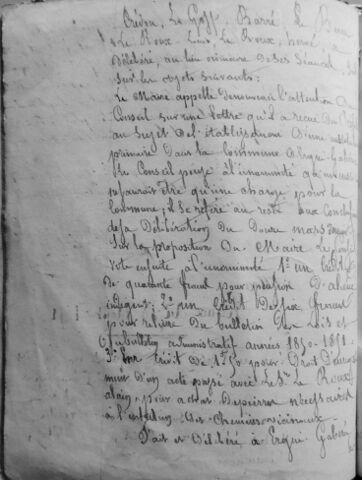 Crédou, Le Goff, Barré, Le Beau
Le Roux Louis, Le Roux, hervé, a
Délibéré, au lieu ordinaire de ses séances
Sur les objets suivants:
Le Maire appelle denouveau l'attention du
Conseil sur une lettre qu'il a recue du
au sujet de l'établissement d'une
primaire dans la Commune d'Ergué-Gabéric
Le Conseil pense à l'unanimité qu'une
ne saurait être qu'une charge pour la
Commune; il se réfère au reste aux
deja délibération du Douze mars
Sur la proposition du Maire Le Conseil
vote ensuite à l'unanimité 1° un Crédit
de quarante francs pour pension d'aliéné
indigent; 2° un Crédit de six francs
pour reliure du bulletin des lois et
du bulletin administratif années 1850-1851.
3° un Crédit de 1f 50 pour Droit d'enregistre
ment d'un acte passé avec le Sr Le Roux
alain, pour achat de pierres nécessaires
à l'entretien des Chemins vicinaux.
Fait et Délibéré à Ergué Gabéric